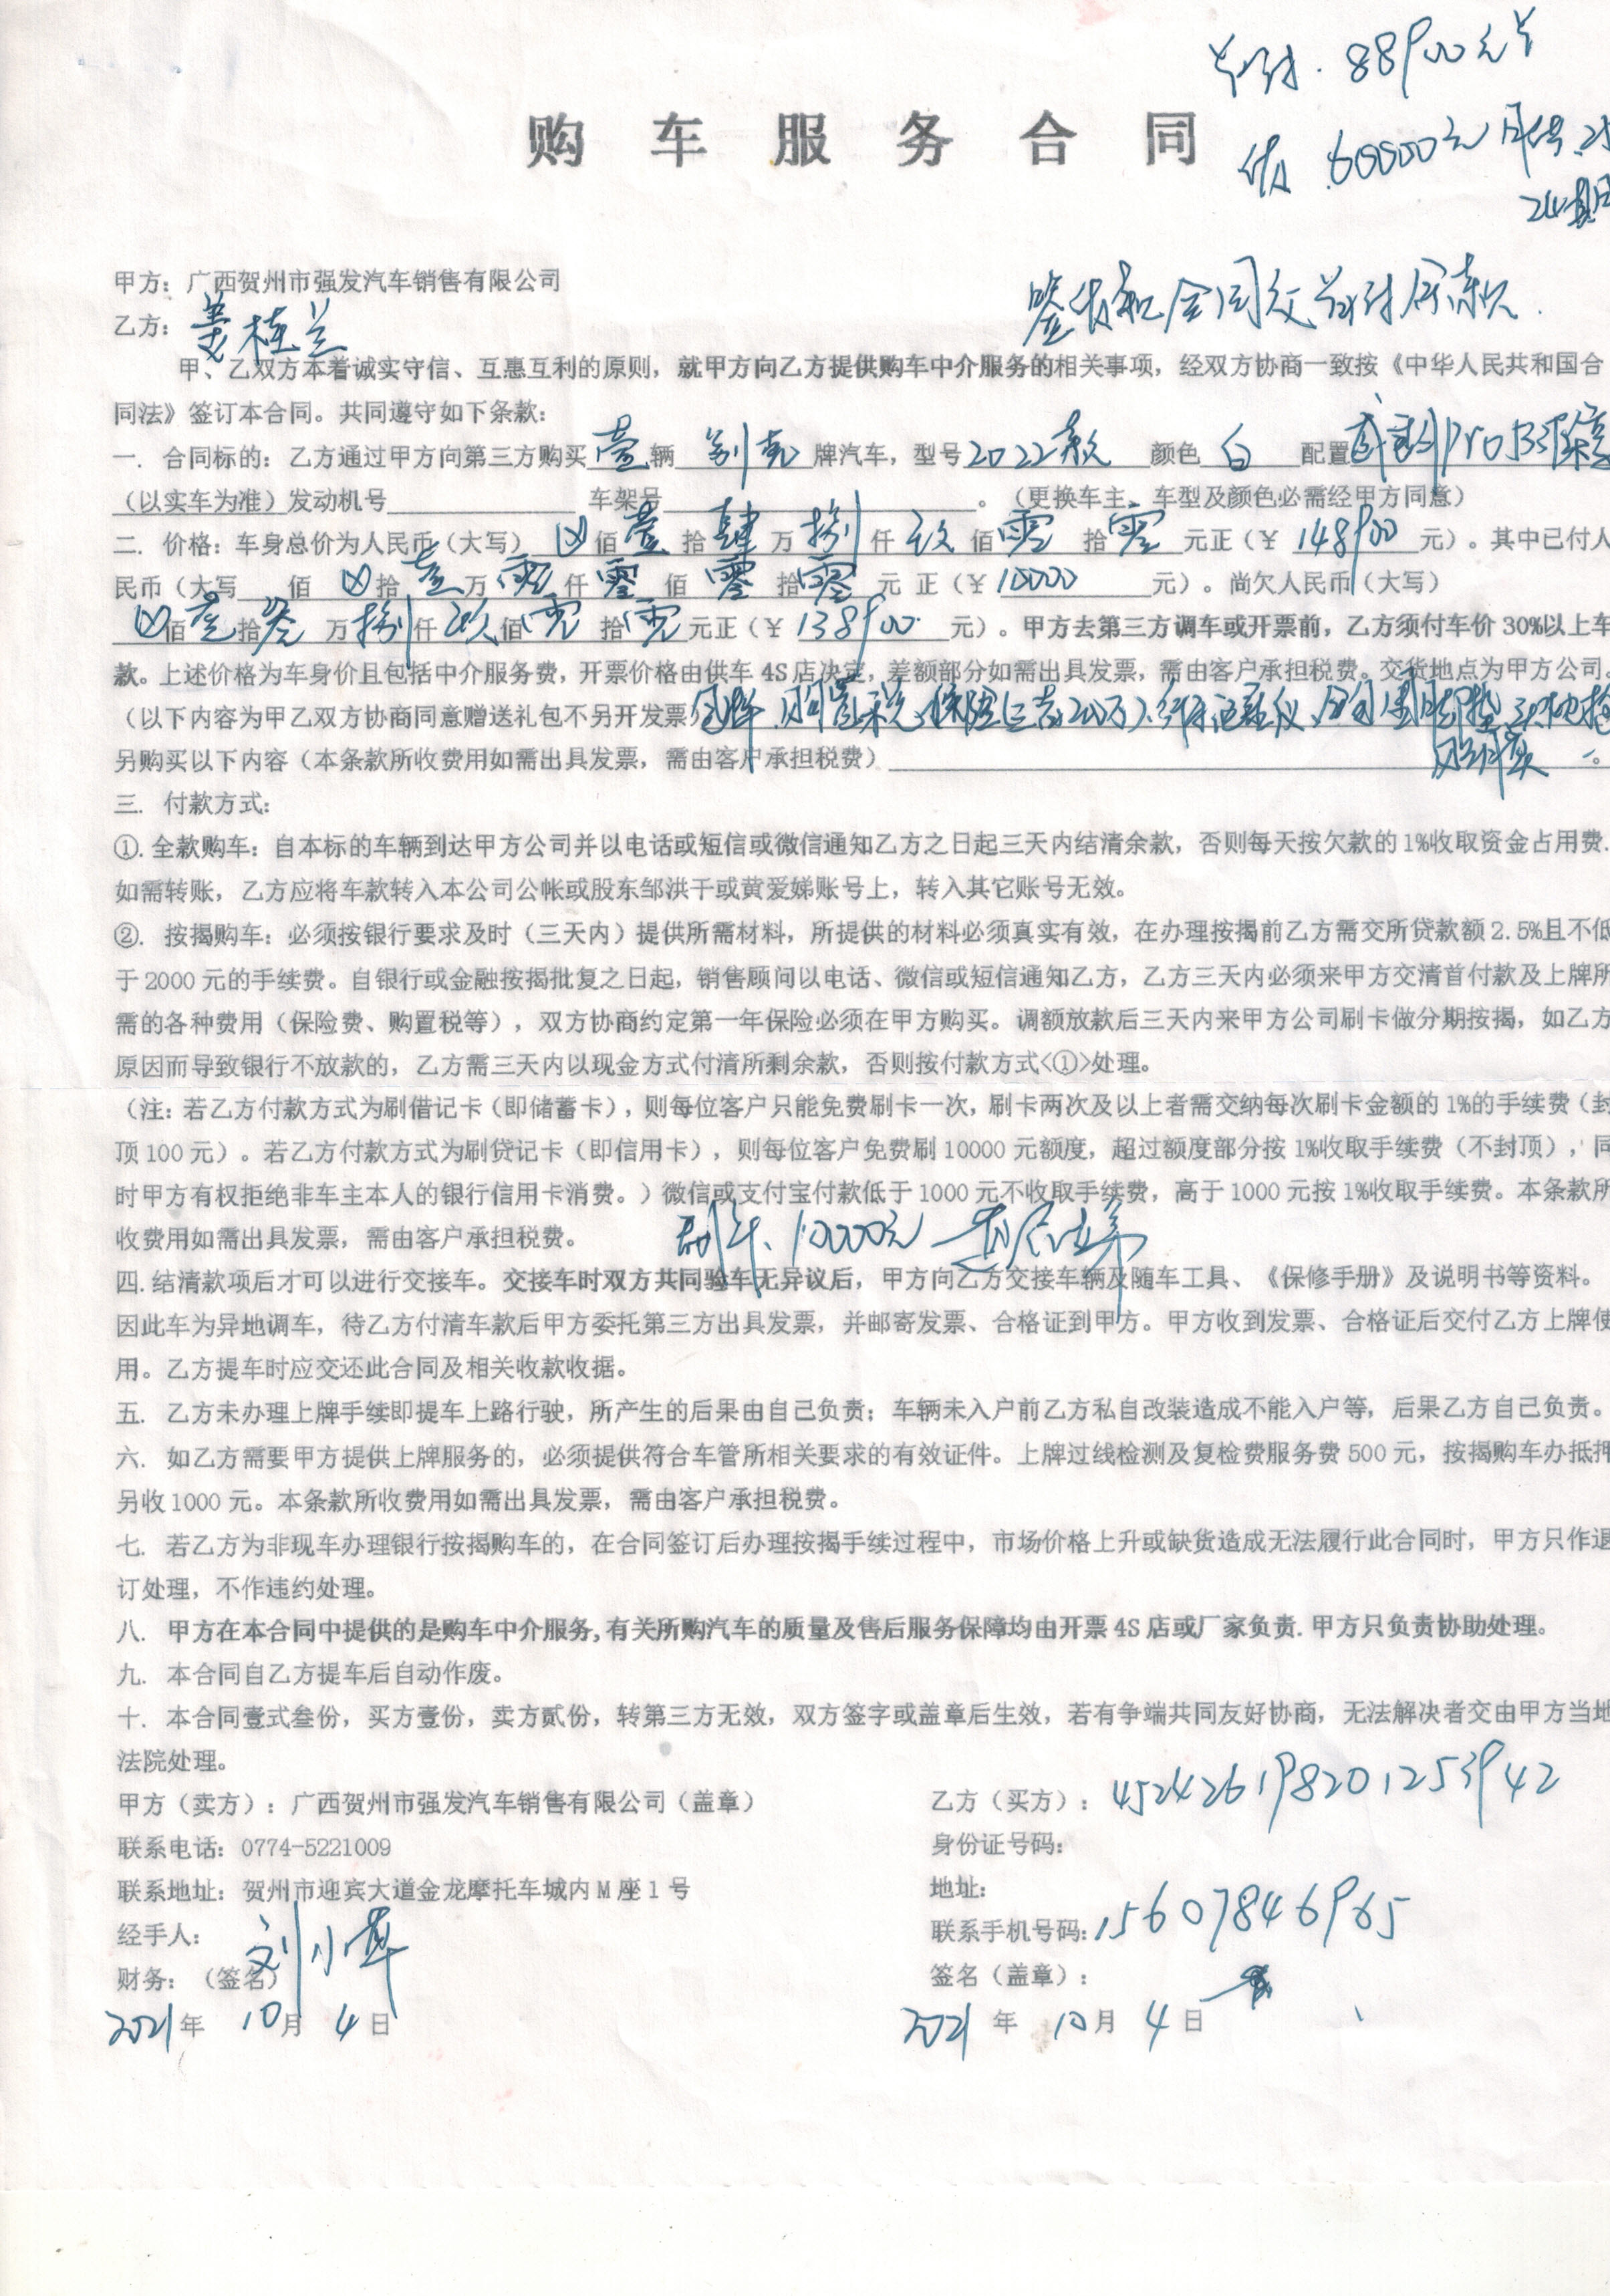 首付. 88900元
贷 60000元 月供 25
24期
购车服务合同
甲方：广西贺州市强发汽车销售有限公司
签贷款合同交首付余款.
乙方：姜桂兰
甲、乙双方本着诚实守信、互惠互利的原则，就甲方向乙方提供购车中介服务的相关事项，经双方协商一致按《中华人民共和国合
同法》签订本合同。共同遵守如下条款：
一. 合同标的：乙方通过甲方向第三方购买壹辆别克牌汽车，型号2022款 颜色白 配置Pro
（以实车为准）发动机号 车架号 。（更换车主、车型及颜色必需经甲方同意）
二. 价格：车身总价为人民币（大写）佰壹拾肆万捌仟玖佰零拾零元正（￥148900元）。其中已付人
民币（大写 佰 拾壹万零仟零佰零拾零元正（￥10000元）。尚欠人民币（大写）
佰壹拾叁万捌仟玖佰零拾零元正（￥138900元）。甲方去第三方调车或开票前，乙方须付车价30%以上车
款。上述价格为车身价且包括中介服务费，开票价格由供车4S店决定，差额部分如需出具发票，需由客户承担税费。交货地点为甲方公司。
（以下内容为甲乙双方协商同意赠送礼包不另开发票）包牌.购置税.保险(三者200万).行车记录仪.全包围脚垫
另购买以下内容（本条款所收费用如需出具发票，需由客户承担税费） 。
三. 付款方式：
①.全款购车：自本标的车辆到达甲方公司并以电话或短信或微信通知乙方之日起三天内结清余款，否则每天按欠款的1%收取资金占用费.
如需转账，乙方应将车款转入本公司公帐或股东邹洪干或黄爱娣账号上，转入其它账号无效。
②. 按揭购车：必须按银行要求及时（三天内）提供所需材料，所提供的材料必须真实有效，在办理按揭前乙方需交所贷款额2.5%且不低
于2000元的手续费。自银行或金融按揭批复之日起，销售顾问以电话、微信或短信通知乙方，乙方三天内必须来甲方交清首付款及上牌所
需的各种费用（保险费、购置税等），双方协商约定第一年保险必须在甲方购买。调额放款后三天内来甲方公司刷卡做分期按揭，如乙方
原因而导致银行不放款的，乙方需三天内以现金方式付清所剩余款，否则按付款方式<①>处理。
（注：若乙方付款方式为刷借记卡（即储蓄卡），则每位客户只能免费刷卡一次，刷卡两次及以上者需交纳每次刷卡金额的1%的手续费（封
顶100元）。若乙方付款方式为刷贷记卡（即信用卡），则每位客户免费刷10000元额度，超过额度部分按1%收取手续费（不封顶），同
时甲方有权拒绝非车主本人的银行信用卡消费。）微信或支付宝付款低于1000元不收取手续费，高于1000元按1%收取手续费。本条款所
收费用如需出具发票，需由客户承担税费。 刷卡、10000元
四.结清款项后才可以进行交接车。交接车时双方共同验车无异议后，甲方向乙方交接车辆及随车工具、《保修手册》及说明书等资料。
因此车为异地调车，待乙方付清车款后甲方委托第三方出具发票，并邮寄发票、合格证到甲方。甲方收到发票、合格证后交付乙方上牌使
用。乙方提车时应交还此合同及相关收款收据。
五. 乙方未办理上牌手续即提车上路行驶，所产生的后果由自己负责；车辆未入户前乙方私自改装造成不能入户等，后果乙方自己负责。
六. 如乙方需要甲方提供上牌服务的，必须提供符合车管所相关要求的有效证件。上牌过线检测及复检费服务费500元，按揭购车办抵押
另收1000元。本条款所收费用如需出具发票，需由客户承担税费。
七. 若乙方为非现车办理银行按揭购车的，在合同签订后办理按揭手续过程中，市场价格上升或缺货造成无法履行此合同时，甲方只作退
订处理，不作违约处理。
八. 甲方在本合同中提供的是购车中介服务,有关所购汽车的质量及售后服务保障均由开票4S店或厂家负责.甲方只负责协助处理。
九. 本合同自乙方提车后自动作废。
十. 本合同壹式叁份，买方壹份，卖方贰份，转第三方无效，双方签字或盖章后生效，若有争端共同友好协商，无法解决者交由甲方当地
法院处理。
甲方（卖方）：广西贺州市强发汽车销售有限公司（盖章） 乙方（买方）：452426198201253942
联系电话：0774-5221009 身份证号码：
联系地址：贺州市迎宾大道金龙摩托车城内M座1号 地址：
经手人：刘小 联系手机号码：15607846965
财务：（签名） 签名（盖章）：
2021年10月4日 2021年10月4日